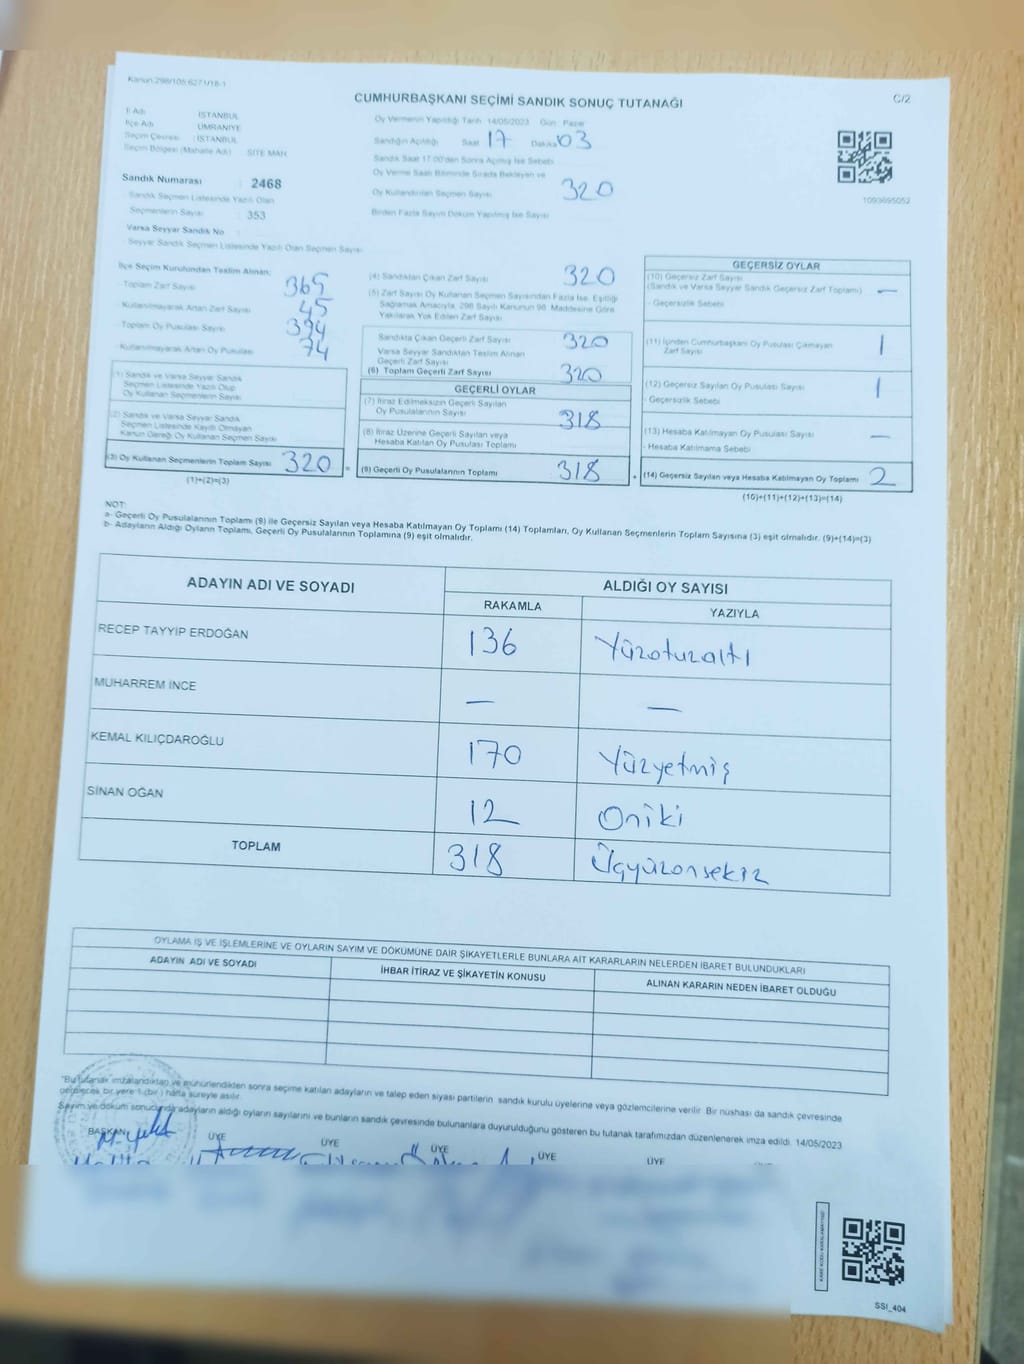 Kanun:298/105;6271/18-1
C/2
CUMHURBAŞKANI SEÇİMİ SANDIK SONUÇ TUTANAĞI
İl Adı : İSTANBUL
İlçe Adı : ÜMRANİYE
Seçim Çevresi : İSTANBUL
Seçim Bölgesi (Mahalle Adı) : SİTE MAH
Sandık Numarası : 2468
Sandık Seçmen Listesinde Yazılı Olan
Seçmenlerin Sayısı : 353
Varsa Seyyar Sandık No :
Seyyar Sandık Seçmen Listesinde Yazılı Olan Seçmen Sayısı
Oy Vermenin Yapıldığı Tarih 14/05/2023 Gün Pazar
Sandığın Açıldığı Saat 17 Dakika 03
Sandık Saat 17.00'den Sonra Açılmış İse Sebebi
Oy Verme Saati Bitiminde Sırada Bekleyen ve
Oy Kullandırılan Seçmen Sayısı 320
Birden Fazla Sayım Döküm Yapılmış İse Sayısı
1093695052
İlçe Seçim Kurulundan Teslim Alınan;
- Toplam Zarf Sayısı 365
- Kullanılmayarak Artan Zarf Sayısı 45
- Toplam Oy Pusulası Sayısı 394
- Kullanılmayarak Artan Oy Pusulası 74
(1) Sandık ve Varsa Seyyar Sandık
Seçmen Listesinde Yazılı Olup
Oy Kullanan Seçmenlerin Sayısı
(2) Sandık ve Varsa Seyyar Sandık
Seçmen Listesinde Kayıtlı Olmayan
Kanun Gereği Oy Kullanan Seçmen Sayısı
(3) Oy Kullanan Seçmenlerin Toplam Sayısı 320 =
(1)+(2)=(3)
(4) Sandıktan Çıkan Zarf Sayısı 320
(5) Zarf Sayısı Oy Kullanan Seçmen Sayısından Fazla İse, Eşitliği
Sağlamak Amacıyla, 298 Sayılı Kanunun 98. Maddesine Göre
Yakılarak Yok Edilen Zarf Sayısı
Sandıkta Çıkan Geçerli Zarf Sayısı 320
Varsa Seyyar Sandıktan Teslim Alınan
Geçerli Zarf Sayısı
(6) Toplam Geçerli Zarf Sayısı 320
GEÇERLİ OYLAR
(7) İtiraz Edilmeksizin Geçerli Sayılan
Oy Pusulalarının Sayısı 318
(8) İtiraz Üzerine Geçerli Sayılan veya
Hesaba Katılan Oy Pusulası Toplamı
(9) Geçerli Oy Pusulalarının Toplamı 318 +
GEÇERSİZ OYLAR
(10) Geçersiz Zarf Sayısı
(Sandık ve Varsa Seyyar Sandık Geçersiz Zarf Toplamı) —
- Geçersizlik Sebebi
(11) İçinden Cumhurbaşkanı Oy Pusulası Çıkmayan
Zarf Sayısı 1
(12) Geçersiz Sayılan Oy Pusulası Sayısı 1
- Geçersizlik Sebebi
(13) Hesaba Katılmayan Oy Pusulası Sayısı —
- Hesaba Katılmama Sebebi
(14) Geçersiz Sayılan veya Hesaba Katılmayan Oy Toplamı 2
(10)+(11)+(12)+(13)=(14)
NOT:
a- Geçerli Oy Pusulalarının Toplamı (9) ile Geçersiz Sayılan veya Hesaba Katılmayan Oy Toplamı (14) Toplamları, Oy Kullanan Seçmenlerin Toplam Sayısına (3) eşit olmalıdır. (9)+(14)=(3)
b- Adayların Aldığı Oyların Toplamı, Geçerli Oy Pusulalarının Toplamına (9) eşit olmalıdır.
ADAYIN ADI VE SOYADI
ALDIĞI OY SAYISI
RAKAMLA YAZIYLA
RECEP TAYYİP ERDOĞAN 136 Yüzotuzaltı
MUHARREM İNCE — —
KEMAL KILIÇDAROĞLU 170 Yüzyetmiş
SİNAN OĞAN 12 Oniki
TOPLAM 318 Üçyüzonsekiz
OYLAMA İŞ VE İŞLEMLERİNE VE OYLARIN SAYIM VE DÖKÜMÜNE DAİR ŞİKAYETLERLE BUNLARA AİT KARARLARIN NELERDEN İBARET BULUNDUKLARI
ADAYIN ADI VE SOYADI İHBAR İTİRAZ VE ŞİKAYETİN KONUSU ALINAN KARARIN NEDEN İBARET OLDUĞU
"Bu tutanak imzalandıktan ve mühürlendikten sonra seçime katılan adayların ve talep eden siyasi partilerin sandık kurulu üyelerine veya gözlemcilerine verilir. Bir nüshası da sandık çevresinde
görülecek bir yere 1 (bir) hafta süreyle asılır.
Sayım ve döküm sonucunda adayların aldığı oyların sayılarını ve bunların sandık çevresinde bulunanlara duyurulduğunu gösteren bu tutanak tarafımızdan düzenlenerek imza edildi. 14/05/2023
BAŞKAN ÜYE ÜYE ÜYE ÜYE ÜYE
SSI_404